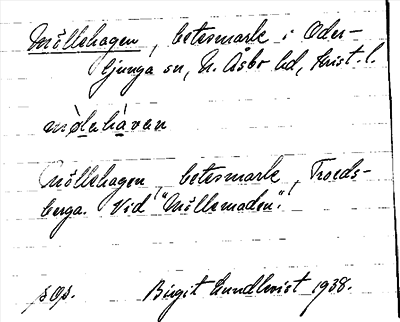 Möllehagen, betesmark i Oder-
ljunga sn, N. Åsbo hd, Krist. l.
mø̀lahàvan
Möllehagen, betesmark, Troeds-
berga. Vid "Möllemaden".
Birgit Lundkvist 1938.